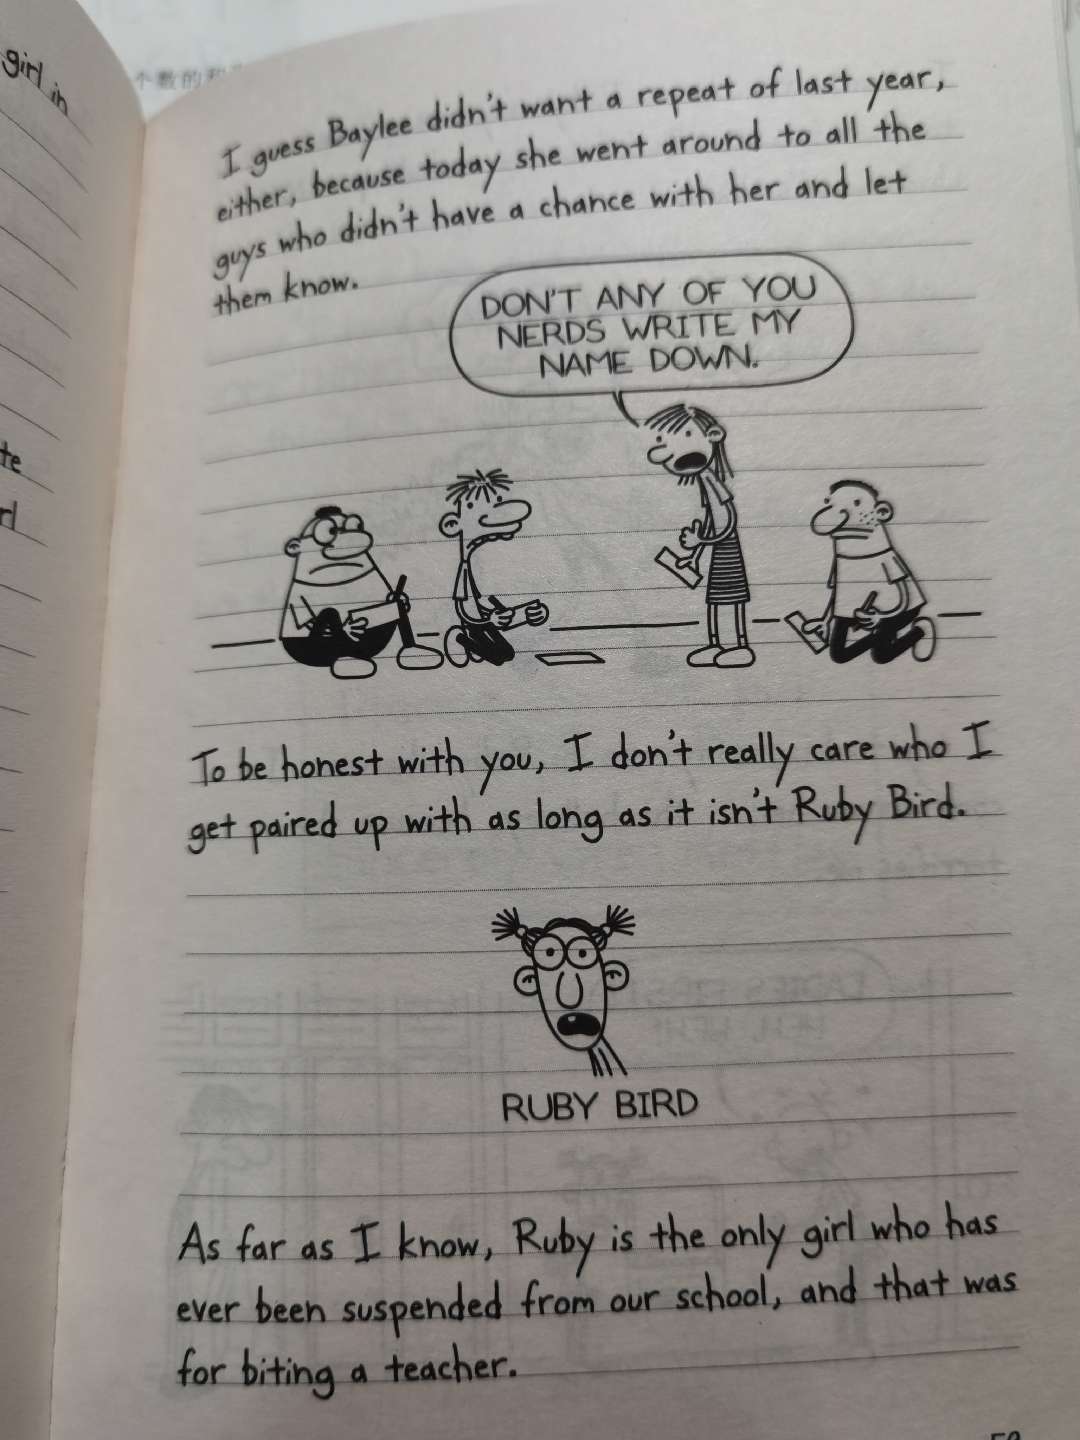 girl in
te
rl
个数的和
I guess Baylee didn't want a repeat of last year,
either, because today she went around to all the
guys who didn't have a chance with her and let
them know.
DON'T ANY OF YOU
NERDS WRITE MY
NAME DOWN.
To be honest with you, I don't really care who I
get paired up with as long as it isn't Ruby Bird.
RUBY BIRD
As far as I know, Ruby is the only girl who has
ever been suspended from our school, and that was
for biting a teacher.